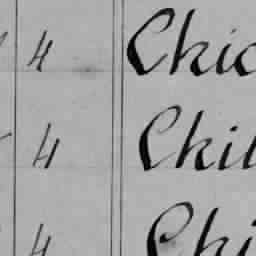 4 Chic
4 Chil
4 Chi